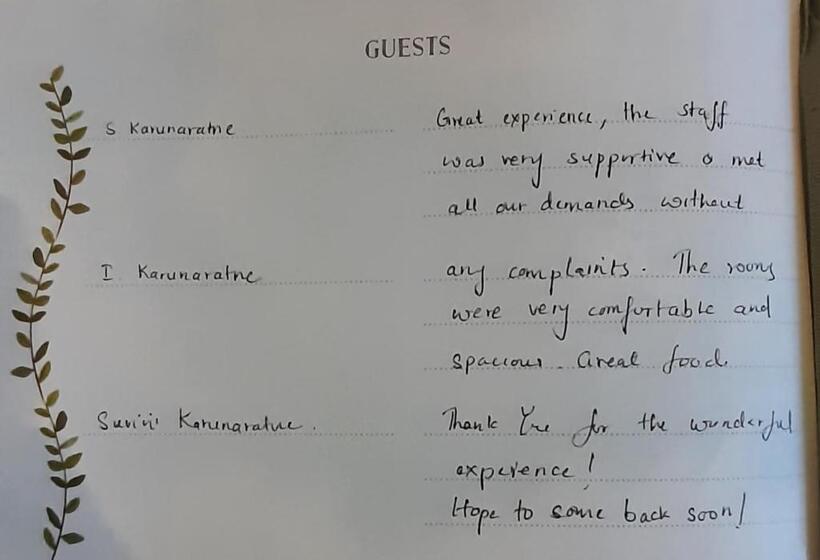 GUESTS
S Karunaratne
Great experience, the staff
was very supportive & met
all our demands without
I Karunaratne
any complaints. The rooms
were very comfortable and
spacious. Great food.
Karunaratne.
Thank You for the wonderful
experience!
Hope to come back soon!